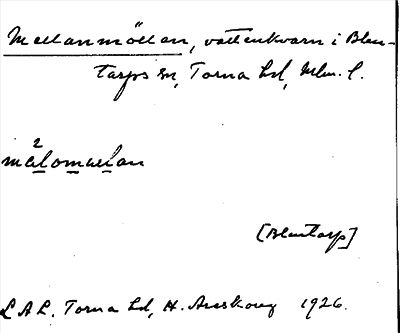 Mellanmöllan, vattenkvarn i Blen-
tarps sn, Torna hd, Mlm. l.
mälomølan
[Blentarp]
L A L. Torna hd, H. Areskoug 1926.